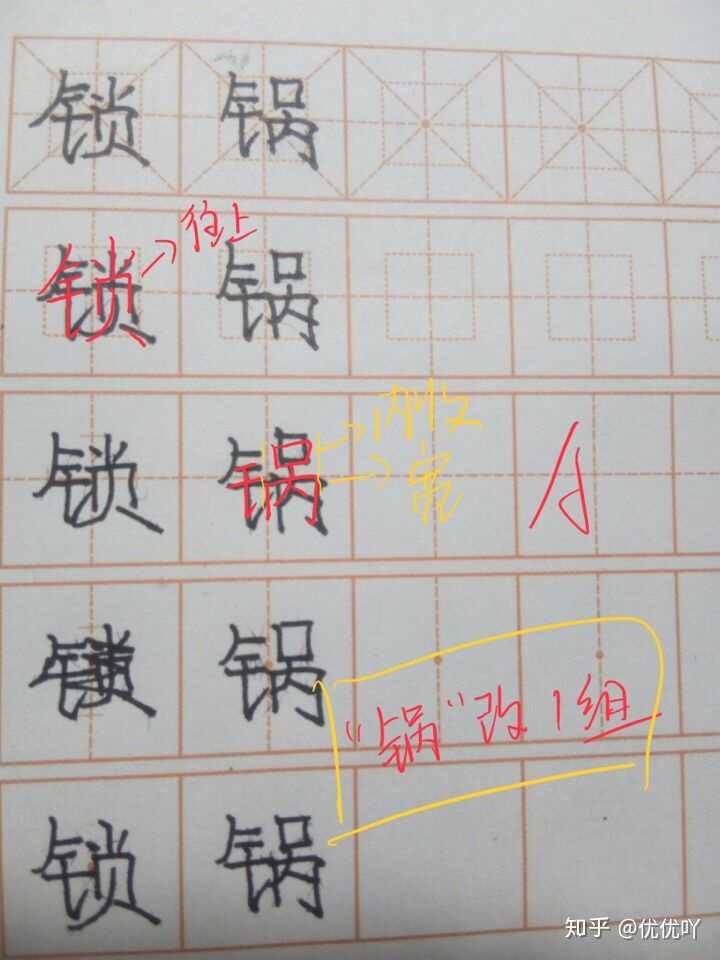 锁 锅
锁 往上 锅
锁 锅 内收
宽 A
锁 锅
"锅"改1组
锁 锅
知乎 @优优吖